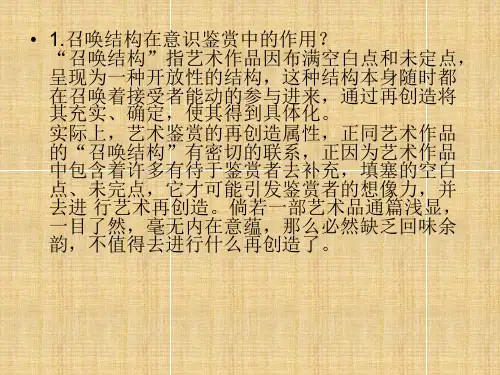 • 1.召唤结构在意识鉴赏中的作用？
“召唤结构”指艺术作品因布满空白点和未定点，
呈现为一种开放性的结构，这种结构本身随时都
在召唤着接受者能动的参与进来，通过再创造将
其充实、确定，使其得到具体化。
实际上，艺术鉴赏的再创造属性，正同艺术作品
的“召唤结构”有密切的联系，正因为艺术作品
中包含着许多有待于鉴赏者去补充，填塞的空白
点、未完点，它才可能引发鉴赏者的想像力，并
去进 行艺术再创造。倘若一部艺术品通篇浅显，
一目了然，毫无内在意蕴，那么必然缺乏回味余
韵，不值得去进行什么再创造了。